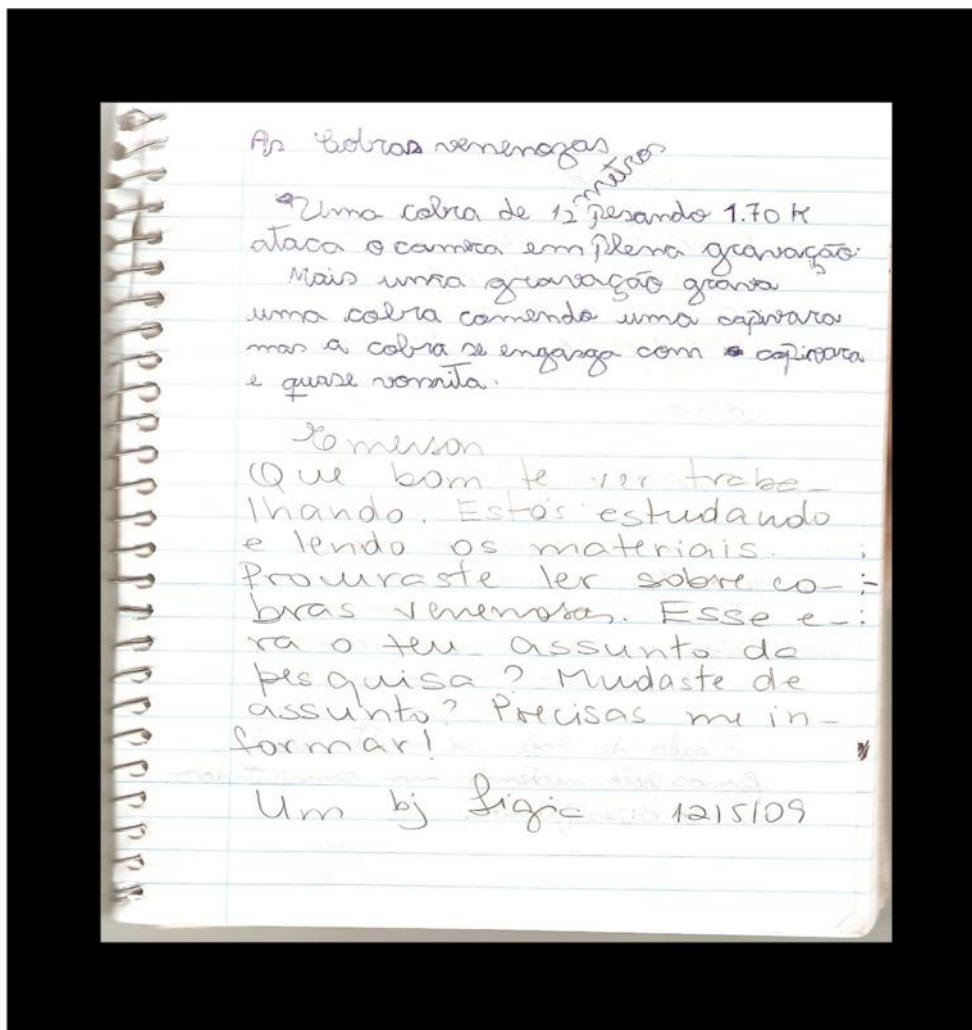 As Cobras venenozas
Uma cobra de 12 metros pesando 1.70 K
ataca o camira em plena gravação.
Mais uma gravação grava
uma cobra comendo uma capivara
mas a cobra se engasga com a capivara
e quase vomita.
Emerson
Que bom te ver traba-
lhando. Estás estudando
e lendo os materiais.
Procuraste ler sobre co-
bras venenosas. Esse e-
ra o teu assunto de
pesquisa? Mudaste de
assunto? Precisas me in-
formar!
Um bj Ligia 12/5/09